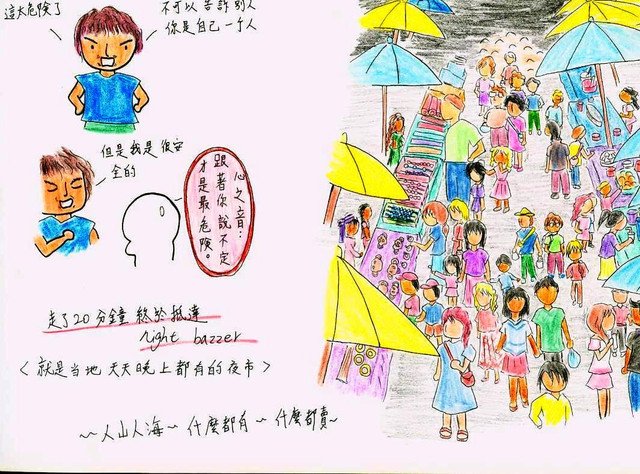 這太危險了
不可以告訴別人
你是自己一个人
但是我是很安
全的
心之音：
跟著你說不定
才是最危險。
走了20分鐘 終於抵達
night bazzer
<就是当地 天天晚上都有的夜市>
~~人山人海~ 什麼都有~ 什麼都賣~